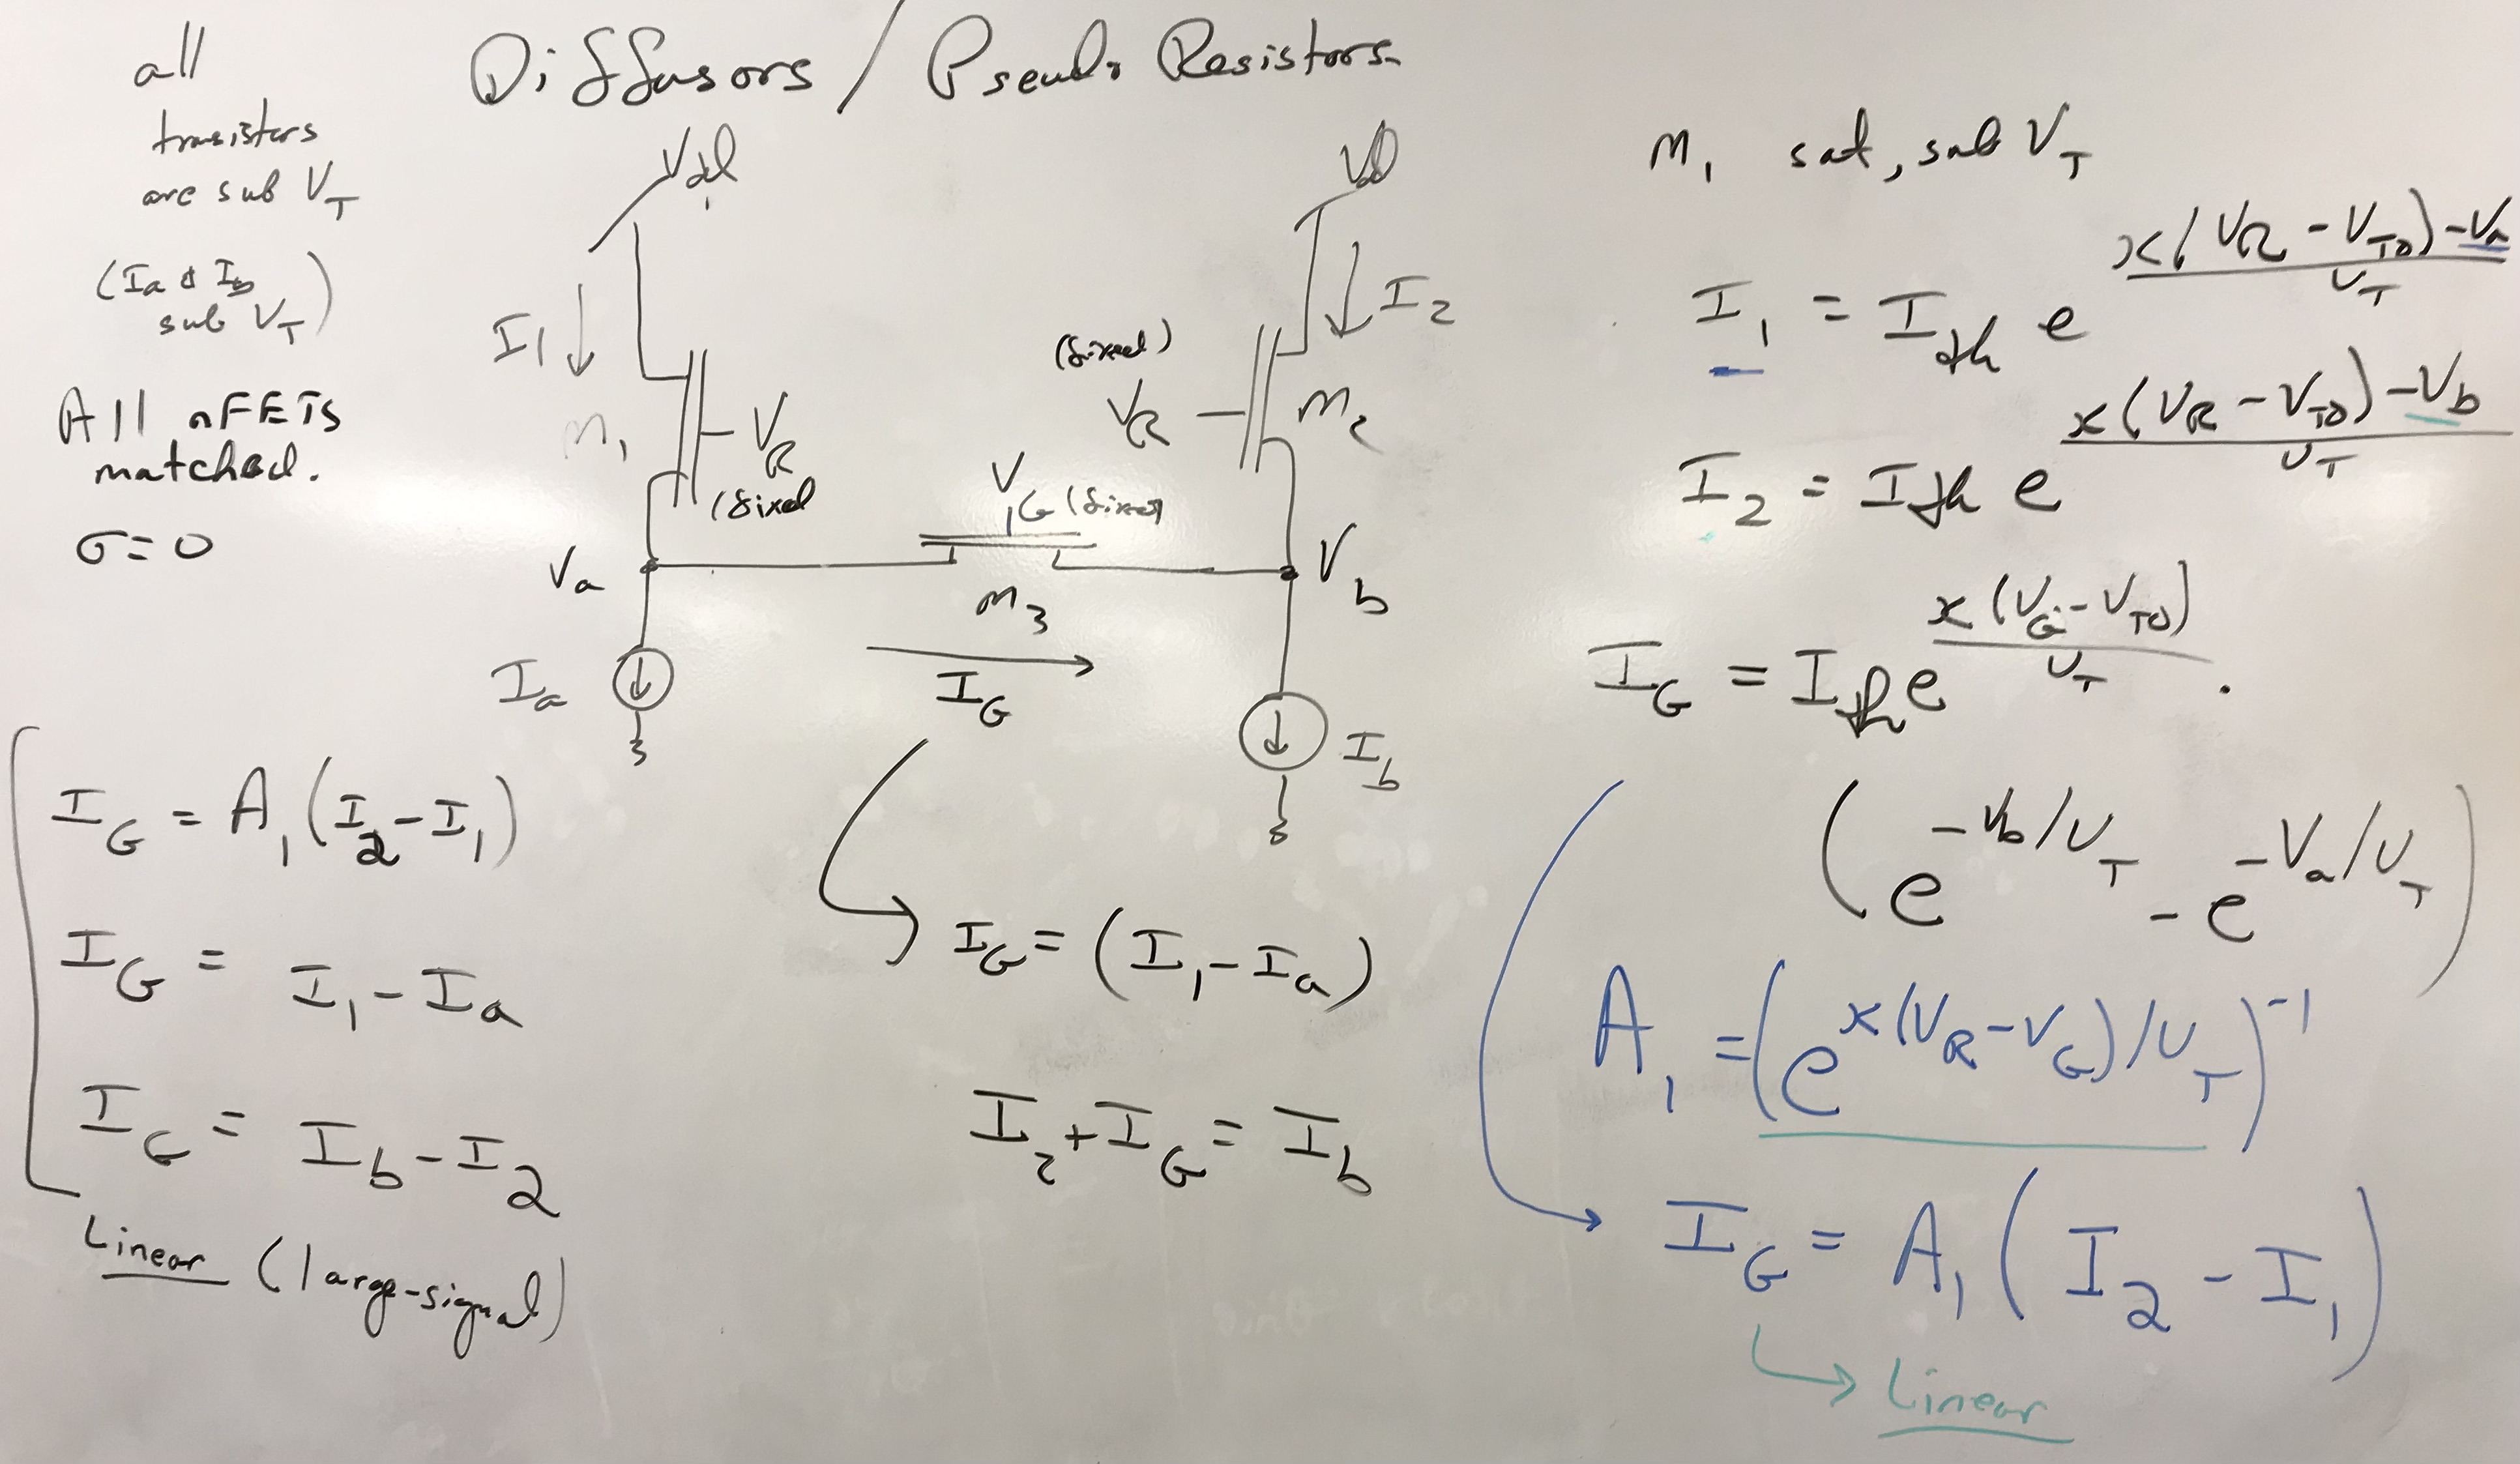 Diffusors / Pseudo Resistors
all
transistors
are sub V_T
(I_a & I_b
sub V_T)
All nFETs
matched.
σ = 0
Vdd
I1
M_1
V_R
(fixed
Vdd
I_2
(fixed)
V_R
M_2
V_G (fixed)
V_a
M_3
V_b
I_G
I_a
I_b
I_G = A_1 (I_2 - I_1)
I_G = I_1 - I_a
I_G = I_b - I_2
Linear (large-signal)
I_G = (I_1 - I_a)
I_2 + I_G = I_b
M_1 sat, sub V_T
I_1 = I_th e^{κ(V_R - V_T0) - V_a / U_T}
I_2 = I_th e^{κ(V_R - V_T0) - V_b / U_T}
I_G = I_th e^{κ(V_G - V_T0) / U_T} .
(e^{-V_b/U_T} - e^{-V_a/U_T})
A_1 = (e^{κ(V_R - V_G)/U_T})^{-1}
I_G = A_1 (I_2 - I_1)
Linear